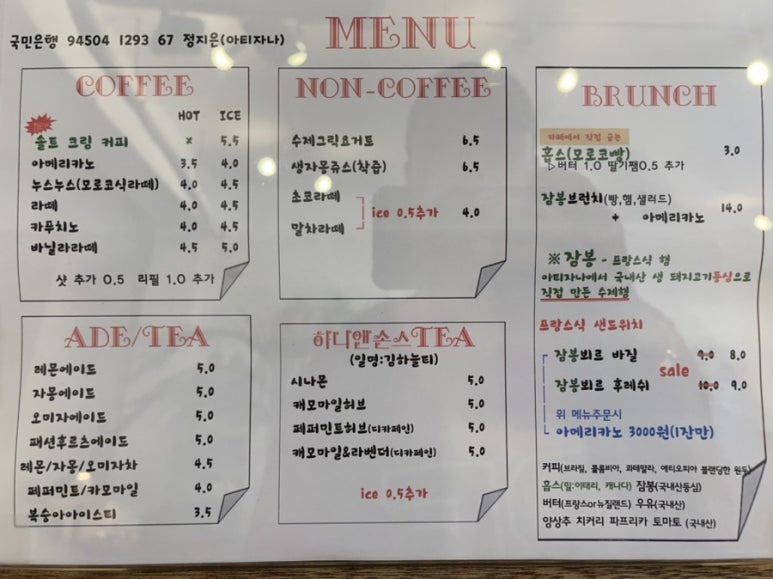 국민은행 94504 1293 67 정지은(아티자나)
MENU
COFFEE
HOT ICE
솔트 크림 커피 x 5.5
아메리카노 3.5 4.0
누스누스(모로코식라떼) 4.0 4.5
라떼 4.0 4.5
카푸치노 4.0 4.5
바닐라라떼 4.5 5.0
샷 추가 0.5 리필 1.0 추가
NON-COFFEE
수제그릭요거트 6.5
생자몽쥬스(착즙) 6.5
초코라떼
ice 0.5추가 4.0
말차라떼
BRUNCH
카페에서 직접 굽는
홉스(모로코빵) 3.0
▷버터 1.0 딸기쨈0.5 추가
잠봉브런치(빵,햄,샐러드)
+ 아메리카노 14.0
※ 잠봉 - 프랑스식 햄
아티자나에서 국내산 생 돼지고기등심으로
직접 만든 수제햄
프랑스식 샌드위치
잠봉뵈르 바질 9.0 8.0
sale
잠봉뵈르 후레쉬 10.0 9.0
위 메뉴주문시
아메리카노 3000원(1잔만)
커피(브라질, 콜롬비아, 과테말라, 에티오피아 블랜딩한 원두)
홉스(밀:이태리, 캐나다) 잠봉(국내산등심)
버터(프랑스or뉴질랜드) 우유(국내산)
양상추 치커리 파프리카 토마토 (국내산)
ADE/TEA
레몬에이드 5.0
자몽에이드 5.0
오미자에이드 5.0
패션후르츠에이드 5.0
레몬/자몽/오미자차 4.5
페퍼민트/카모마일 4.0
복숭아아이스티 3.5
하니앤손스TEA
(일명:김하늘티)
시나몬 5.0
캐모마일허브 5.0
페퍼민트허브(디카페인) 5.0
캐모마일&라벤더(디카페인) 5.0
ice 0.5추가